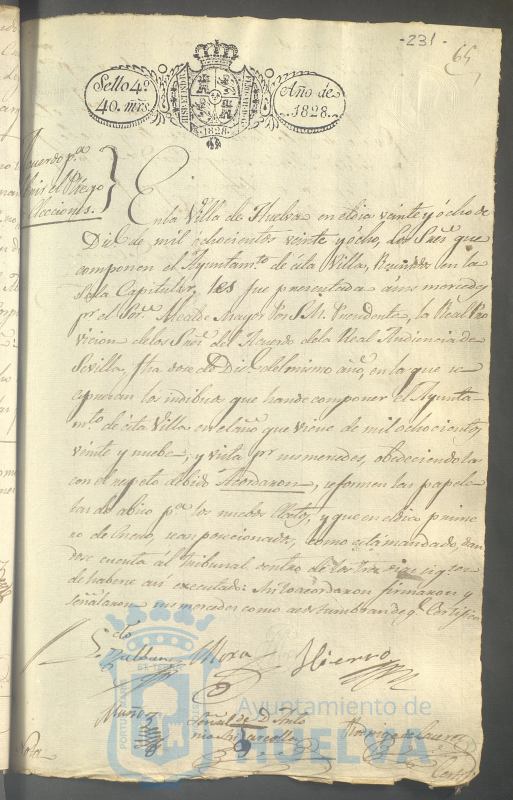 -231-
65
Sello 4º
40. mrs.
Año de
1828.
1828.
Acuerdo pª
el Pliego
Elecciones.
En la Villa de Huelva en el dia veinte y ócho de
Dic.e de mil ochocientos veinte y ócho, Los Sres que
componen el Ayuntamto de ésta Villa, Reunidos en la
Sala Capitular, les fue presentada a sus mercedes
pr el Sor Alcalde Mayor Por S.M. Precidente, la Real Pro
vicion de los Sres del Acuerdo de la Real Audiencia de
Sevilla, fha doze de Dic.e del mismo año, en la que se
expresan los individuos que han de componer el Ayunta-
mto de ésta Villa en el año que viene de mil ochocientos
veinte y nuebe, y vista pr sus mercedes, obedeciendola
con el respeto debido Acordaron, se formen las papele
tas de abiso pª los nuebos Electos, y que en el dia prime
ro de Enero, sean posecionados, como está mandado, dan
dose cuenta al tribunal dentro de los tres dias sigtes
de haberse asi executado: Asi lo acordaron firmaron y
señalaron sus mercedes como acostumbran de q. Certifico
Ldo
Mora
Hierro
Muñoz
Señal de D. Anto
nio
Ayuntamiento de
HUELVA